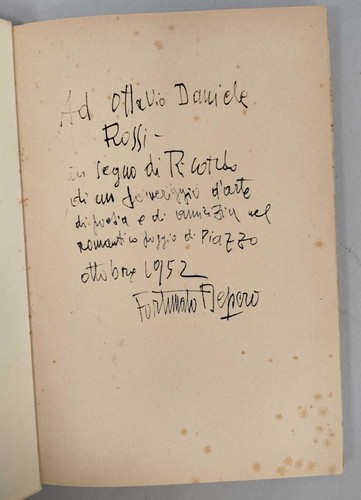 Ad Ottavio Daniele
Rossi -
in segno di Ricordo
di un pomeriggio d'arte
di poesia e di amicizia nel
romantico poggio di Piazzo
ottobre 1952
Fortunato Depero